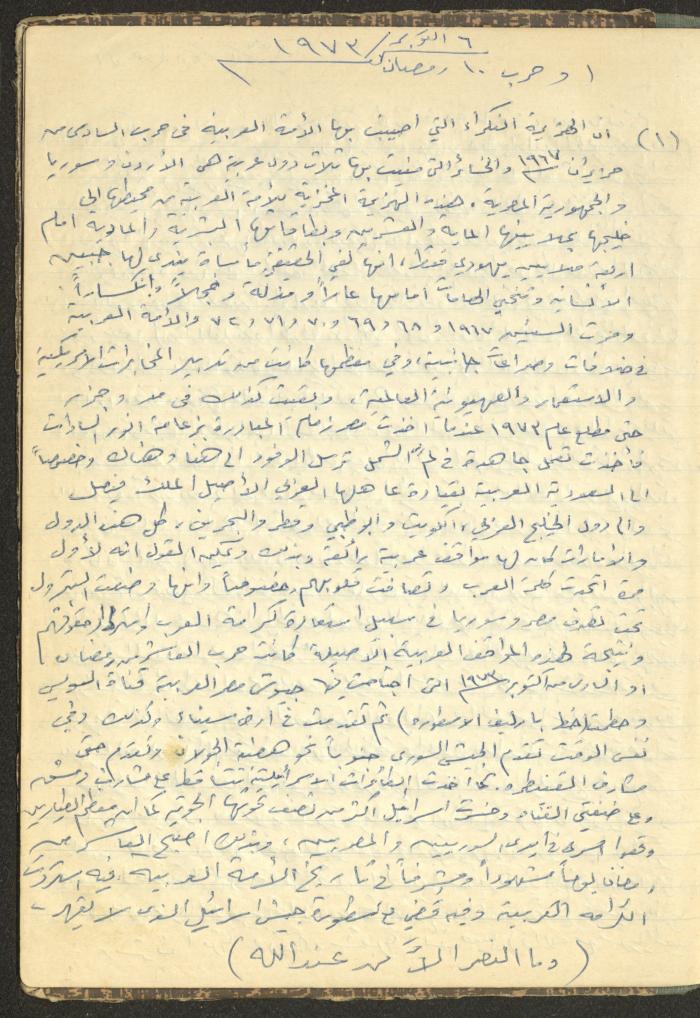 ٦ اكتوبر / ١٩٧٣
او حرب ١٠ رمضان
(١) ان الهزيمة النكراء التي اصيبت بها الأمة العربية في حرب السادس من
حزيران ١٩٦٧ والخسائر التي منيت بها ثلاث دول عربية هي الأردن وسوريا
والجمهورية المصرية، هذه الهزيمة المخزية للأمة العربية من محيطها الى
خليجها بملايينها الماية والعشرين وبطاقاتها البشرية والمادية امام
اربعة ملايين يهودي فقط، انها لفي الحقيقة مأساة يندى لها جبين
الأنسانية وتنحني الهامات امامها عاراً ومذلة وخجلاً وانكساراً.
ومرت السنين ١٩٦٧ و ٦٨ و ٦٩ و ٧٠ و ٧١ و ٧٢ والأمة العربية
في خلافات وصراعات جانبية، وفي معظمها كانت من تدبير المخابرات الامريكية
والاستعمار والصهيونية العالمية، وبقيت كذلك في مد وجزر
حتى مطلع عام ١٩٧٣ عندما اخذت مصر زمام المبادرة بزعامة انور السادات
فأخذت تعمل جاهدة في لم الشمل ترسل الوفود الى هنا وهناك وخصوصاً
الى السعودية العربية بقيادة عاهلها العربي الأصيل الملك فيصل
والى دول الخليج العربي، الكويت وابوظبي وقطر والبحرين، كل هذه الدول
والامارات كان لها مواقف عربية رائعة وبذلك ويمكن القول انه لأول
مرة اتحدت كلمة العرب وتصافت قلوبهم، خصوصاً وانها وضعت البترول
تحت تصرف مصر وسوريا في سبيل استعادة كرامة العرب واسترداد حقوقهم
ونتيجة لهذه المواقف العربية الأصيلة كانت حرب العاشر من رمضان
او السادس من اكتوبر ١٩٧٣ التي اجتاحت فيها جيوش مصر العربية قناة السويس
وحطمت (خط بارليف الاسطوره) ثم تقدمت في ارض سيناء وكذلك وفي
نفس الوقت تقدم الجيش السوري جنوباً نحو هضبة الجولان وتقدم حتى
مشارف القنيطره. كما أخذت الطائرات الاسرائيلية تتساقط على مشارف دمشق
وعلى ضفتي القناه وخسرت اسرائيل اكثر من نصف قوتها الجوية كما ان معظم الطيارين
وقعوا اسرى في أيدي السوريين والمصريين، وبذلك اصبح العاشر من
رمضان يوماً مشهوداً ومشرفاً في تاريخ الأمة العربية فيه استردت
الكرامه العربية وفيه قضي على اسطورة جيش اسرائيل الذي لا يقهر -
(وما النصر الاَّ من عند الله)